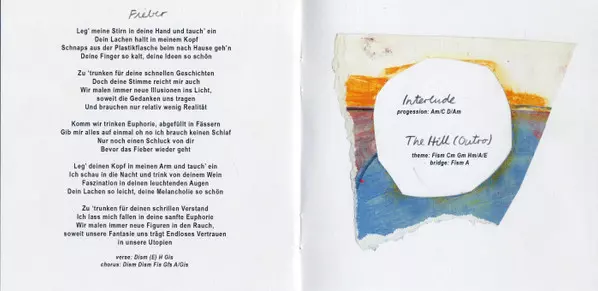 Fieber
Leg' meine Stirn in deine Hand und tauch' ein
Dein Lachen hallt in meinem Kopf
Schnaps aus der Plastikflasche beim nach Hause geh'n
Deine Finger so kalt, deine Ideen so schön
Zu 'trunken für deine schnellen Geschichten
Doch deine Stimme reicht mir auch
Wir malen immer neue Illusionen ins Licht,
soweit die Gedanken uns tragen
Und brauchen nur relativ wenig Realität
Komm wir trinken Euphorie, abgefüllt in Fässern
Gib mir alles auf einmal oh no ich brauch keinen Schlaf
Nur noch einen Schluck von dir
Bevor das Fieber wieder geht
Leg' deinen Kopf in meinen Arm und tauch' ein
Ich schau in die Nacht und trink von deinem Wein
Faszination in deinen leuchtenden Augen
Dein Lachen so leicht, deine Melancholie so schön
Zu 'trunken für deinen schrillen Verstand
Ich lass mich fallen in deine sanfte Euphorie
Wir malen immer neue Figuren in den Rauch,
soweit unsere Fantasie uns trägt Endloses Vertrauen
in unsere Utopien
verse: Dism (E) H Gis
chorus: Dism Dism Fis Gfs A/Gis
Interlude
progession: Am/C D/Am
The Hill (Outro)
theme: Fism Cm Gm Hm/A/E
bridge: Fism A